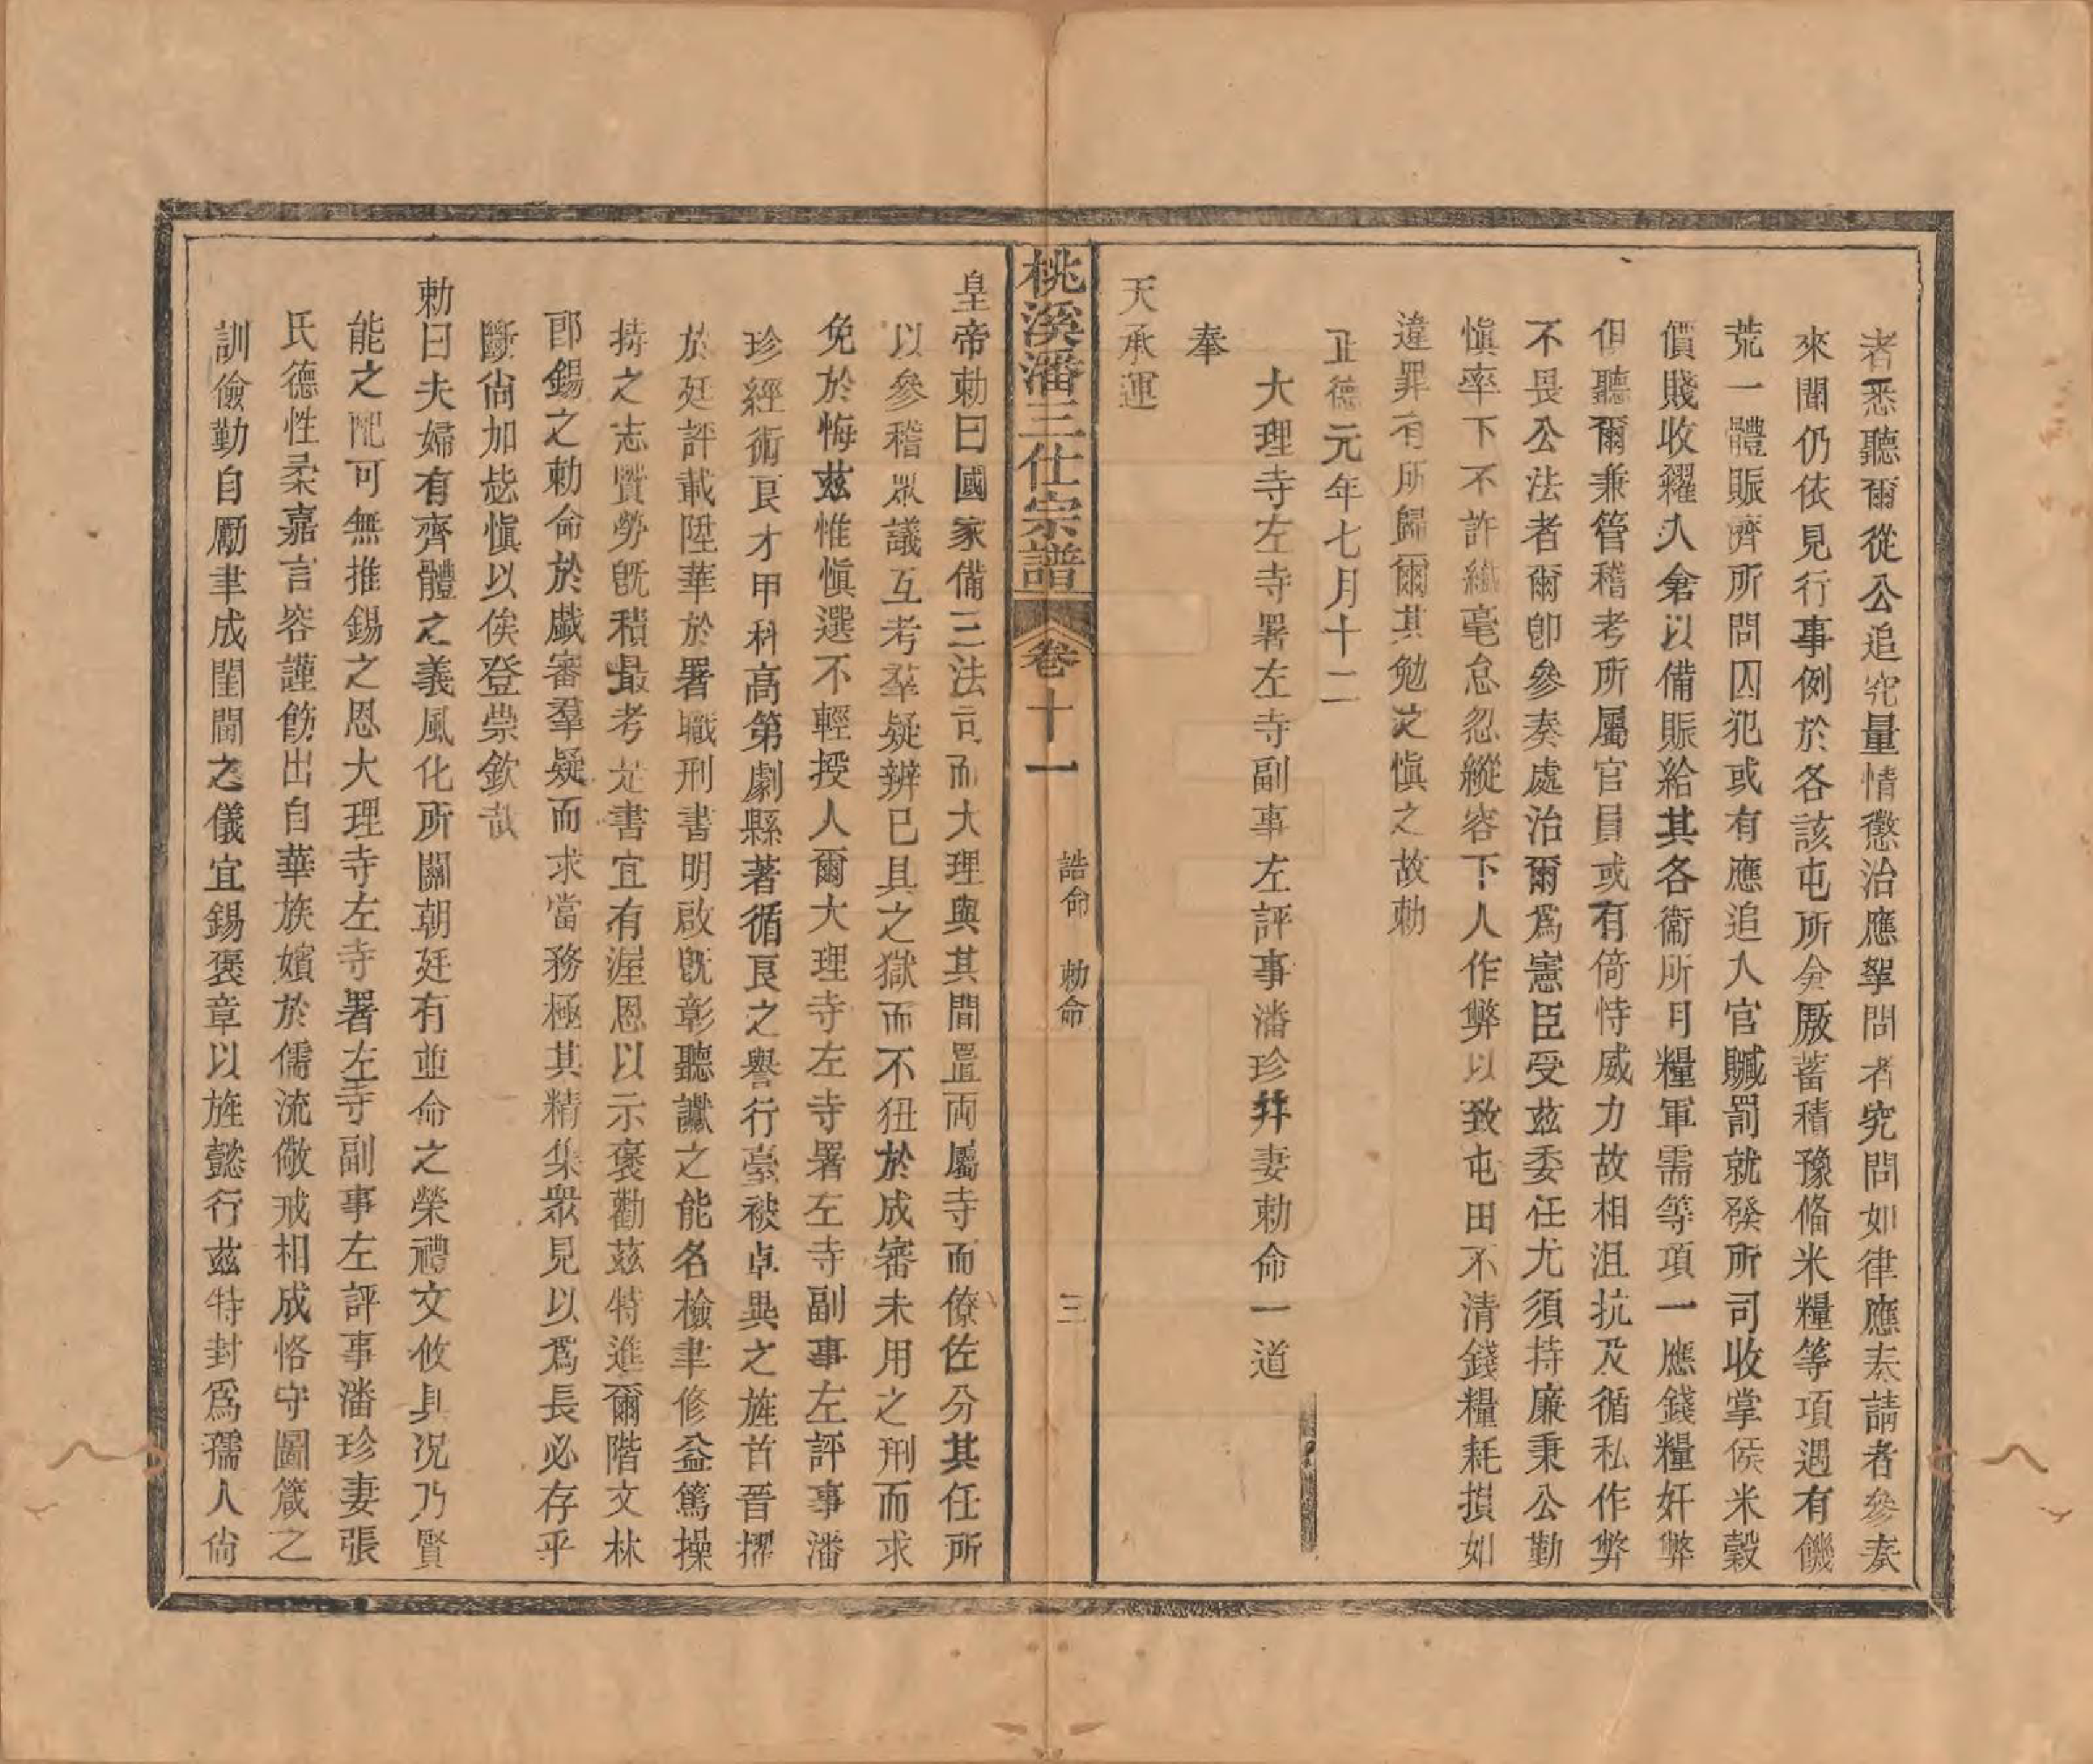 者悉聽爾從公追究量情懲治應拏問者究問如律應奏請者參奏
來聞仍依見行事例於各該屯所分厫蓄積豫俻米糧等項遇有饑
荒一體賑濟所問囚犯或有應追入官贓罰就發所司收掌俟米穀
價賤收糴入倉以備賑給其各衞所月糧軍需等項一應錢糧奸弊
但聽爾兼管稽考所屬官員或有倚恃威力故相沮抗及循私作弊
不畏公法者爾卽參奏處治爾爲憲臣受茲委任尤須持廉秉公勤
愼率下不許纖毫怠忽縱容下人作弊以致屯田不清錢糧耗損如
違罪有所歸爾其勉之愼之故勅
正德元年七月十二
大理寺左寺署左寺副事左評事潘珍幷妻勅命一道
奉
天承運
桃溪潘三仕宗譜 卷十一 誥命 勅命 三
皇帝勅曰國家備三法司而大理與其間置両屬寺而僚佐分其任所
以參稽眾議互考羣疑辨已具之獄而不狃於成審未用之刑而求
免於悔茲惟愼選不輕授人爾大理寺左寺署左寺副事左評事潘
珍經術良才甲科高第劇縣著循良之譽行臺被卓異之旌首晉擢
於廷評載陞華於署職刑書明啟旣彰聽讞之能名檢聿修益篤操
持之志賢勞旣積最考尤書宜有渥恩以示褒勸茲特進爾階文林
郎錫之勅命於戲審羣疑而求當務極其精集衆見以爲長必存乎
斷尙加毖愼以俟登崇欽哉
勅曰夫婦有齊體之義風化所關朝廷有並命之榮禮文攸具况乃賢
能之配可無推錫之恩大理寺左寺署左寺副事左評事潘珍妻張
氏德性柔嘉言容謹飭出自華族嬪於儒流儆戒相成恪守圖箴之
訓儉勤自勵聿成閨閫之儀宜錫褒章以旌懿行茲特封爲孺人尙